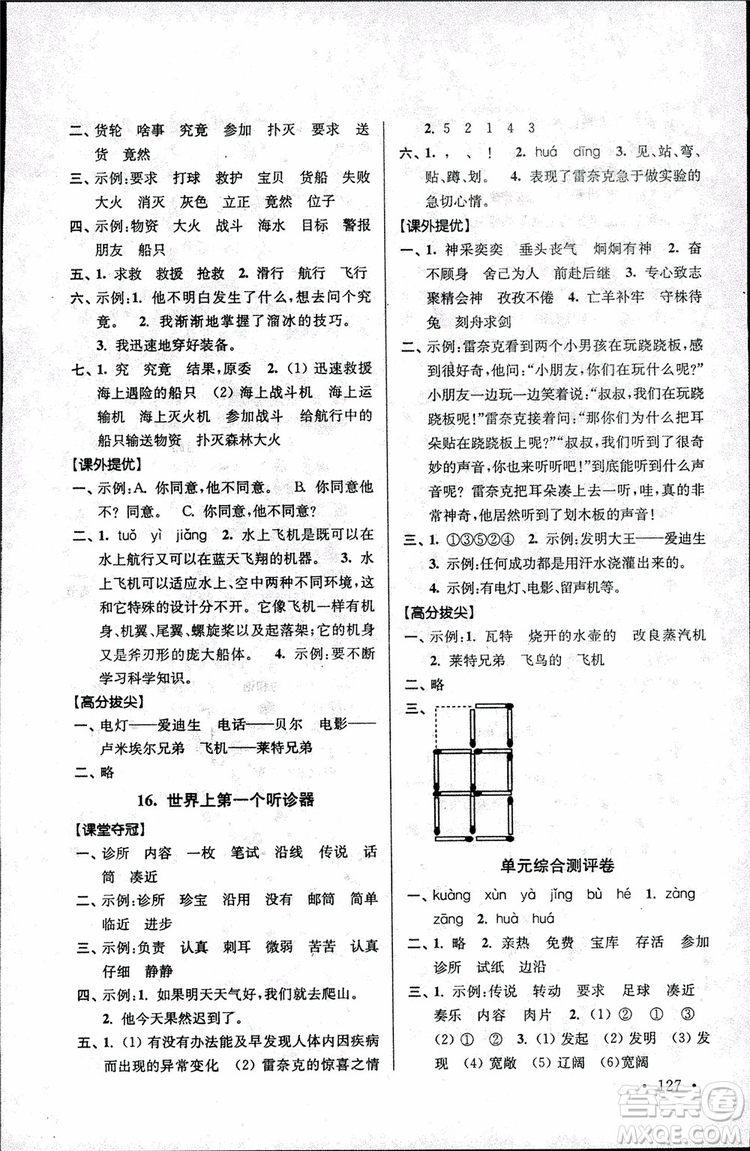 二、货轮 啥事 究竟 参加 扑灭 要求 送
货 竟然
三、示例:要求 打球 救护 宝贝 货船 失败
大火 消灭 灰色 立正 竟然 位子
四、示例:物资 大火 战斗 海水 目标 警报
朋友 船只
五、1. 求救 救援 抢救 2. 滑行 航行 飞行
六、示例:1. 他不明白发生了什么,想去问个究
竟。 2. 我渐渐地掌握了溜冰的技巧。
3. 我迅速地穿好装备。
七、1. 究 究竟 结果,原委 2. (1) 迅速救援
海上遇险的船只 (2) 海上战斗机 海上运
输机 海上灭火机 参加战斗 给航行中的
船只输送物资 扑灭森林大火
【课外提优】
一、示例:A. 你同意,他不同意。 B. 你同意,他
不? 同意。 C. 你同意,他不同意?
二、1. tuǒ yì jiǎng 2. 水上飞机是可以在
水上航行又可以在蓝天飞翔的机器。 3. 水
上飞机可以适应水上、空中两种不同环境,这
和它特殊的设计分不开。它像飞机一样,有机
身、机翼、尾翼、螺旋桨以及起落架;它同样
又有像斧刃形的庞大船体。 4. 示例:要不断
学习科学知识。
【高分拔尖】
一、电灯——爱迪生 电话——贝尔 电影——
卢米埃尔兄弟 飞机——莱特兄弟
二、略
16. 世界上第一个听诊器
【课堂夺冠】
一、诊所 内容 一枚 笔试 沿线 传说 话
筒 凑近
二、示例:诊所 珍宝 沿用 没有 邮筒 简单
临近 进步
三、示例:负责 认真 刺耳 微弱 苦苦 认真
仔细 静静
四、示例:1. 如果明天天气好,我们就去爬山。
2. 他今天果然迟到了。
五、1. (1) 有没有办法能及早发现人体内因疾病
而出现的异常变化 (2) 雷奈克的惊喜之情
2. 5 2 1 4 3
六、1. , 、 ! 2. huá dīng 3. 见、站、弯、
贴、蹲、划。 4. 表现了雷奈克急于做实验的
急切心情。
【课外提优】
一、1. 神采奕奕 垂头丧气 炯炯有神 2. 奋
不顾身 舍己为人 前赴后继 3. 专心致志
聚精会神 孜孜不倦 4. 亡羊补牢 守株待
兔 刻舟求剑
二、示例:雷奈克看到两个小男孩在玩跷跷板,
他走上前问:“小朋友,你们在玩什么呢?”
小朋友一边玩一边笑着说:“叔叔,我们在玩跷
跷板呢!”雷奈克接着问:“那你们为什么把耳
朵贴在跷跷板上呢?”“叔叔,我们听到了很奇
妙的声音,你也来听听吧!”小男孩热情地邀
请。雷奈克把耳朵凑过去一听,哇,真的是很
奇妙的声音,他听到了划木板的声音!
三、1. ①③⑤②④ 2. 示例:发明大王——爱迪生
3. 示例:任何成功都是用汗水浇灌出来的。
4. 示例:有电灯、电影、留声机等。
【高分拔尖】
一、示例:1. 瓦特 烧开的水壶的 改良蒸汽机
2. 莱特兄弟 飞鸟的 飞机
二、略
三、
单元综合测评卷
一、kuàng xùn yà jǐng bù hé 1. zàng
zāng 2. huà huá
二、1. 略 2. 亲热 免费 宝库 存活 参加
诊所 试纸 边沿
三、示例:传说 转动 要求 足球 凑近
奏乐 内容 肉片 四、1. (1) ② ① ③
(2) ① ② 2. (1) 发起 (2) 发明 (3) 发
现 (4) 宽敞 (5) 辽阔 (6) 宽阔
• 127 •
答案圈
MXQE.COM